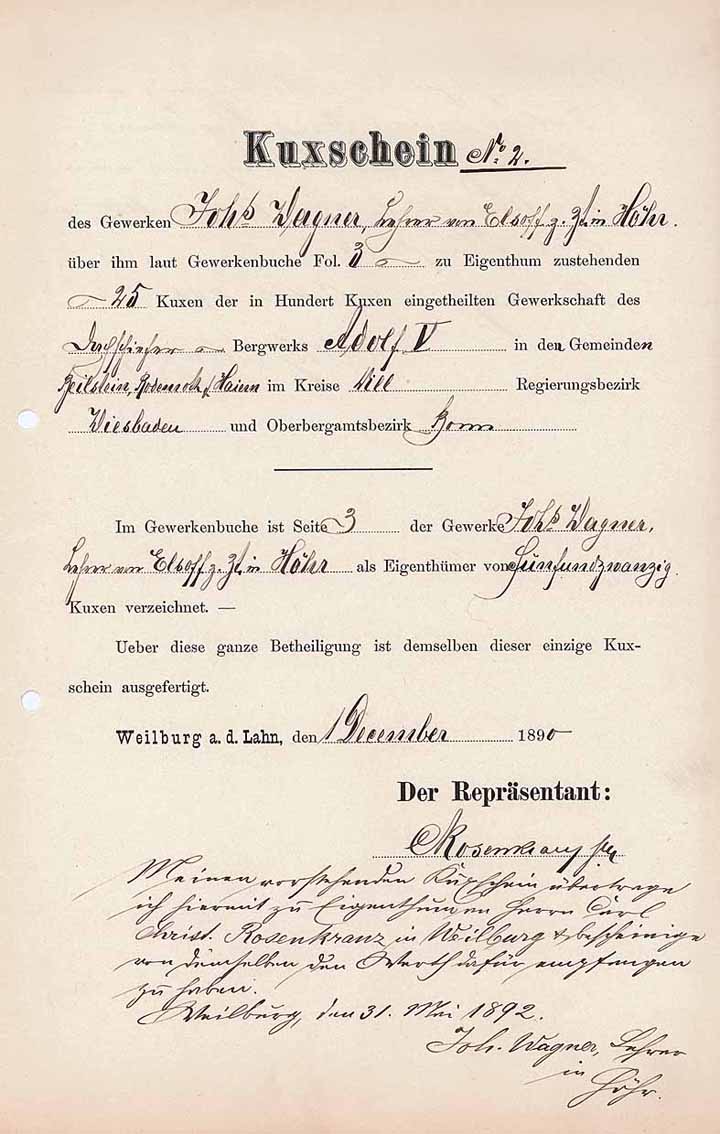 Kuxschein No 2.
des Gewerken Johs Wagner, Lehrer von Elsoff z. Zt. in Höhr.
über ihm laut Gewerkenbuche Fol. 3 zu Eigenthum zustehenden
25 Kuxen der in Hundert Kuxen eingetheilten Gewerkschaft des
Dachschiefer Bergwerks Adolf V in den Gemeinden
Beilstein, Rodenroth, Haiern im Kreise Dill Regierungsbezirk
Wiesbaden und Oberbergamtsbezirk Bonn
Im Gewerkenbuche ist Seite 3 der Gewerke Johs Wagner,
Lehrer von Elsoff z. Zt. in Höhr als Eigenthümer von Fünfundzwanzig
Kuxen verzeichnet. —
Ueber diese ganze Betheiligung ist demselben dieser einzige Kux-
schein ausgefertigt.
Weilburg a. d. Lahn, den 1 December 1890
Der Repräsentant:
CRosenkranz
Meinen vorstehenden Kuxschein übertrage
ich hiermit zu Eigenthum an Herrn Carl
Christ. Rosenkranz in Weilburg & bescheinige
von demselben den Werth dafür empfangen
zu haben.
Weilburg, den 31. Mai 1892.
Joh. Wagner, Lehrer
in
Höhr.